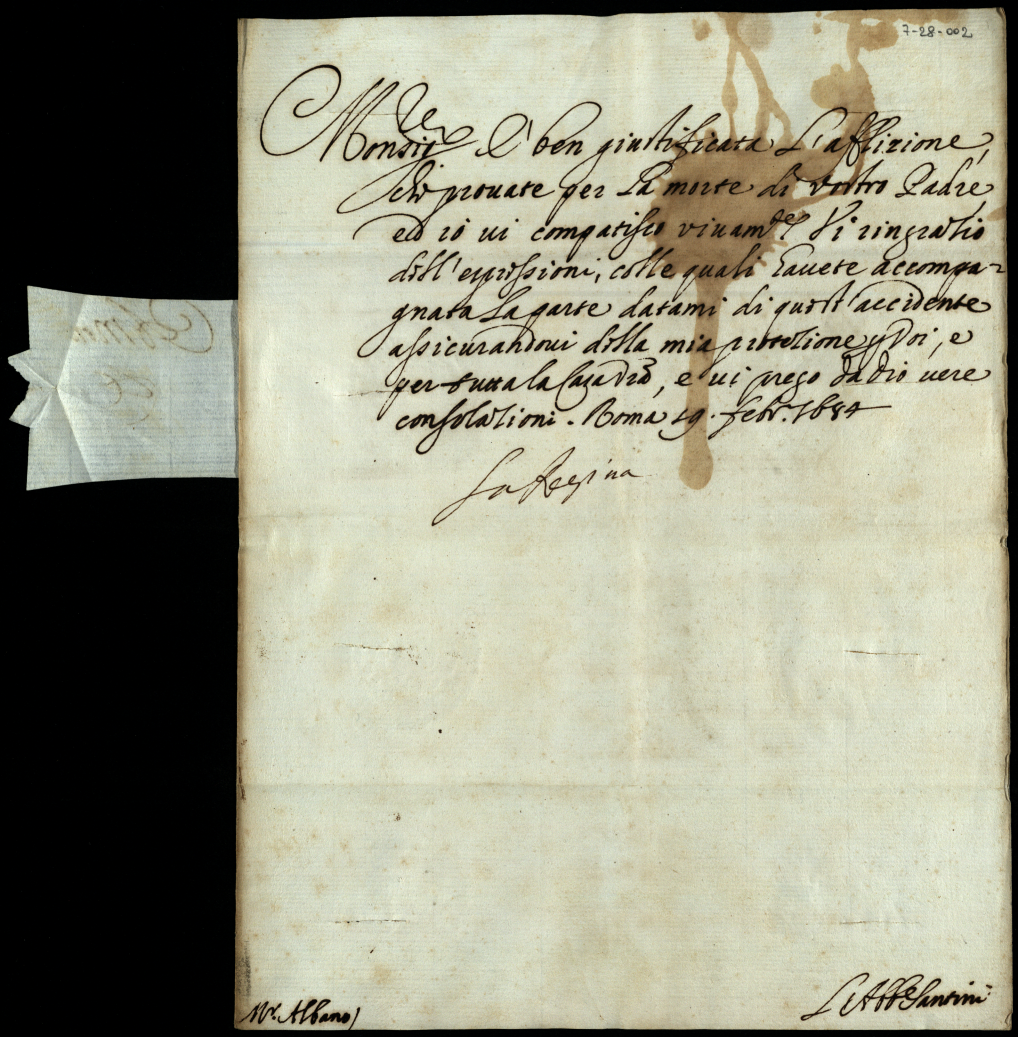 7-28-002
Monsig.re E' ben giustificata L'afflizione,
che prouate per La morte di vostro Padre,
ed io ui compatisco viuam.te Vi ringratio
dell'espressioni, colle quali hauete accompa-
gnata La parte datami di quest'accidente
assicurandoui della mia protetione p Voi, e
per tutta la Casa v̄ra, e ui prego da dio uere
consolationi. Roma 19. febr. 1684
La Regina
M.r Albano
L'Abb.e Santini